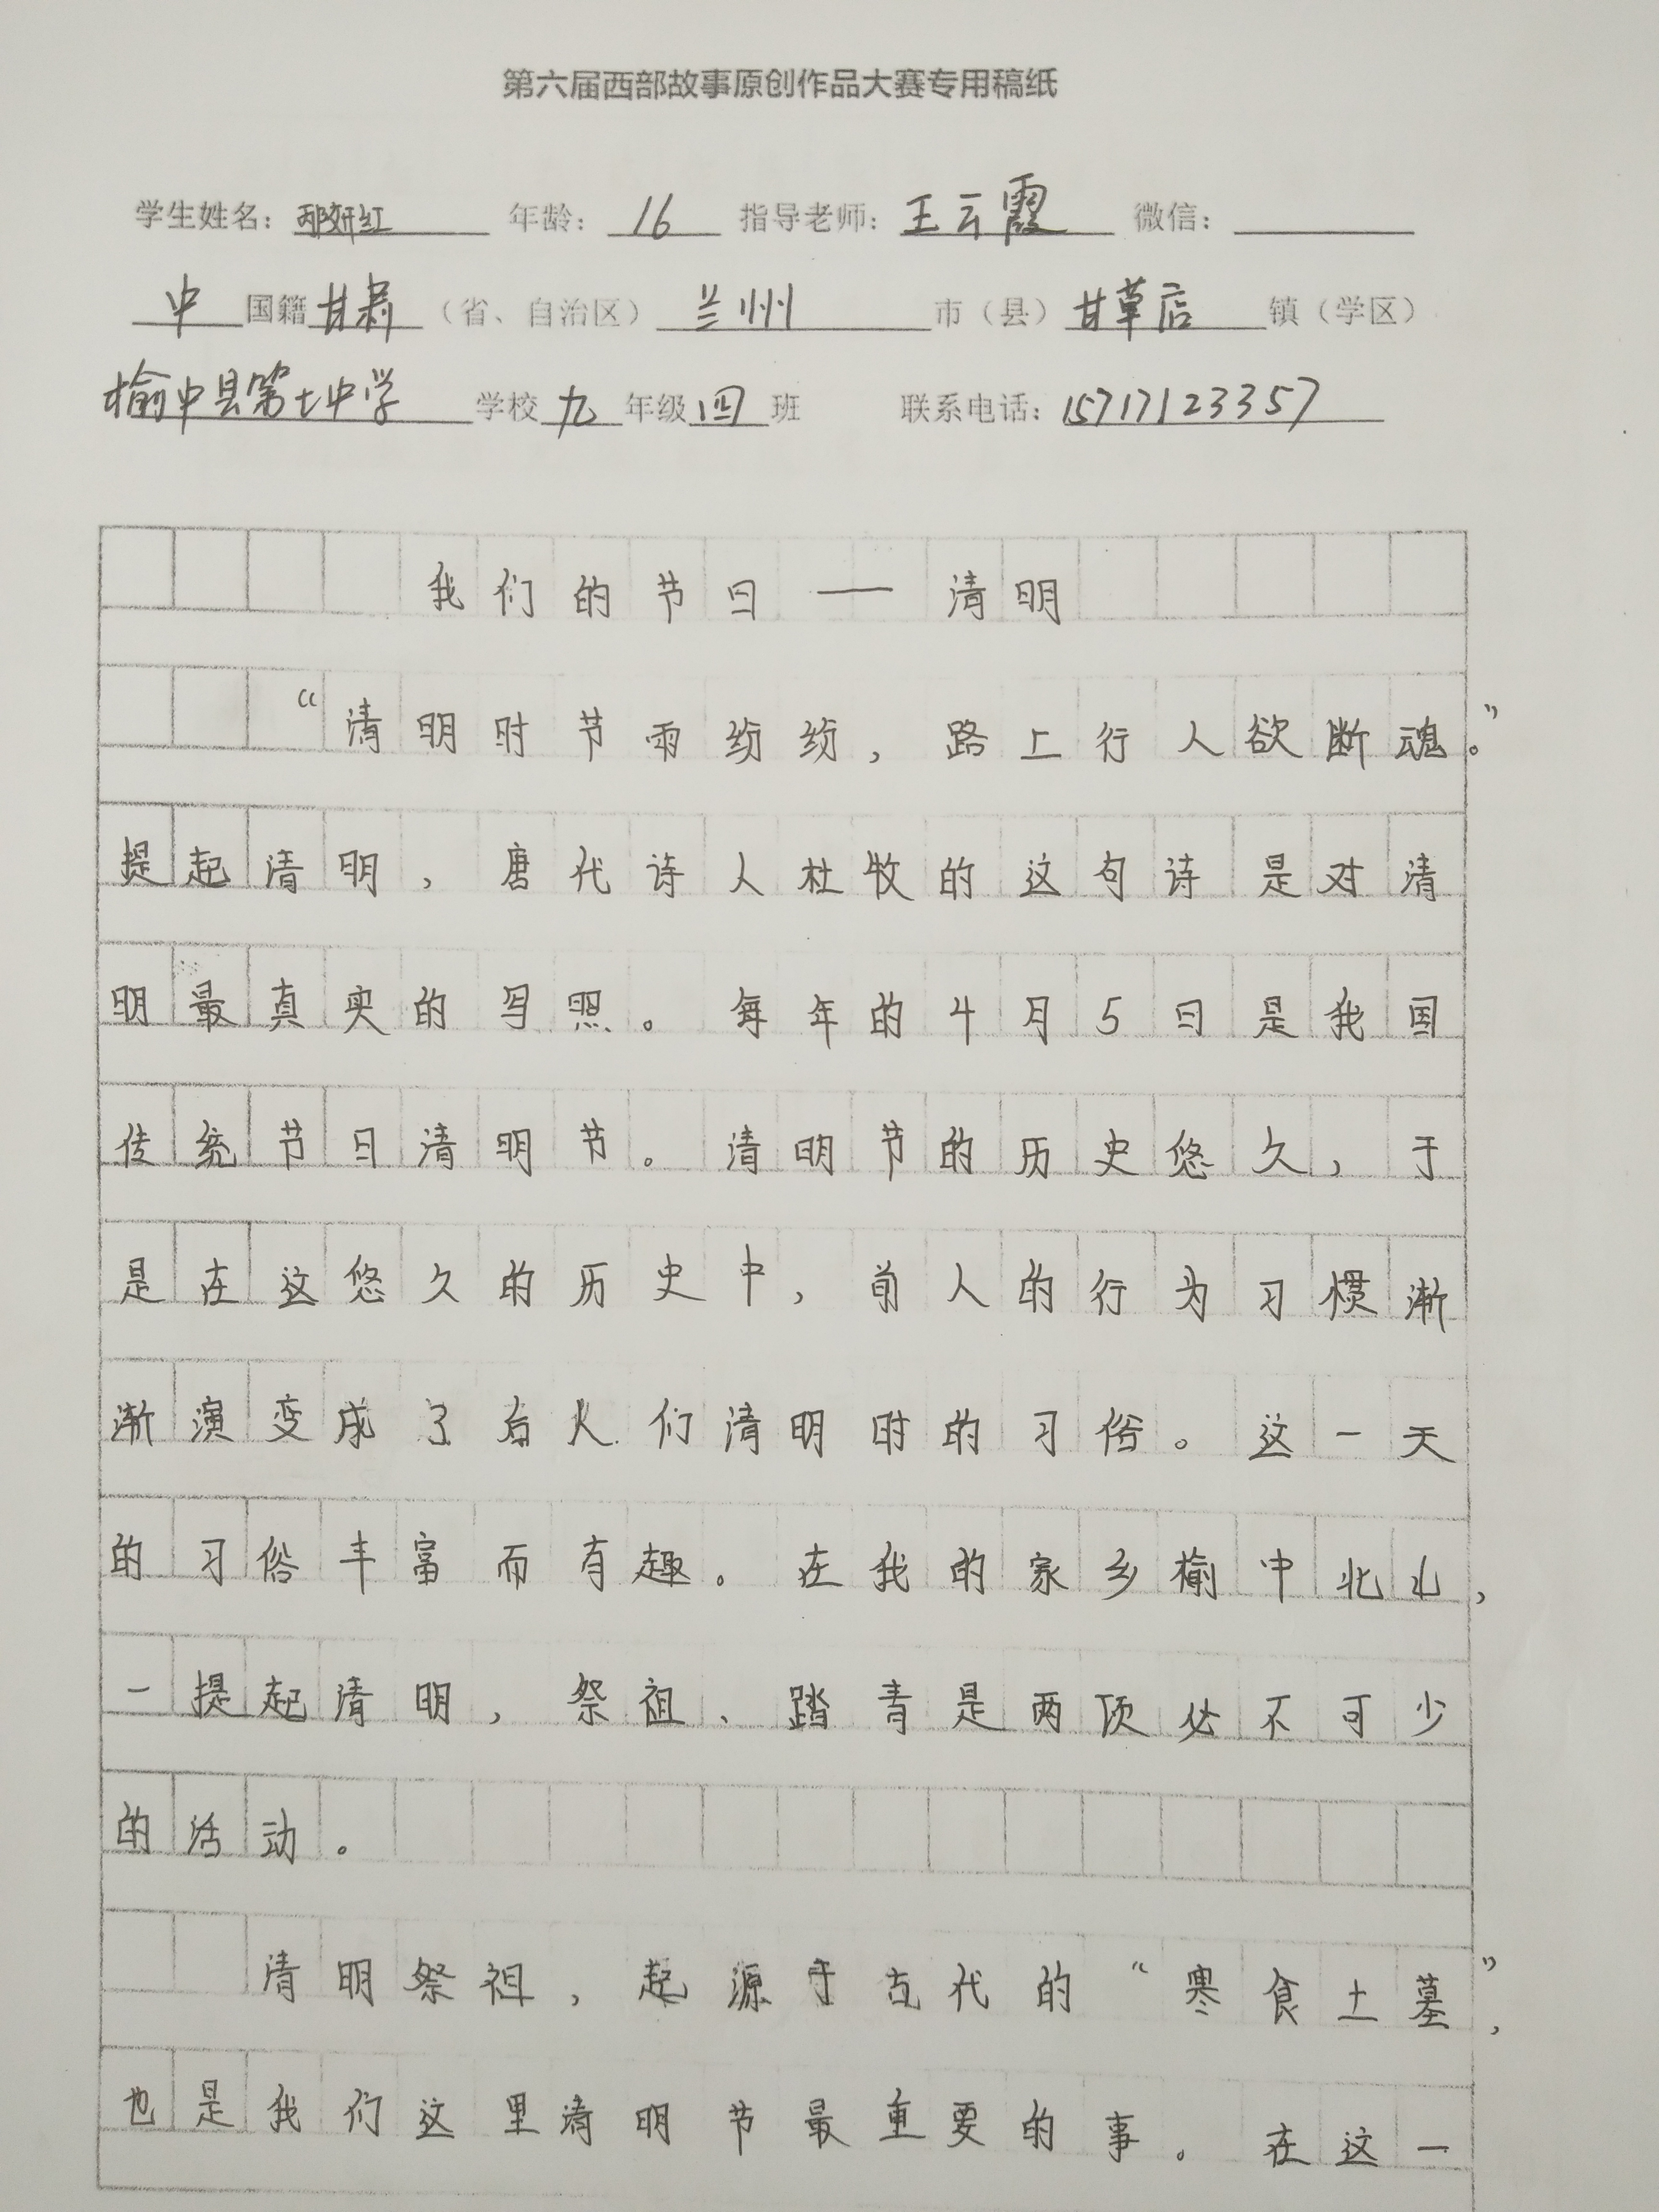 第六届西部故事原创作品大赛专用稿纸
学生姓名：邴妍红 年龄：16 指导老师：王云霞 微信：
中国籍甘肃（省、自治区）兰州市（县）甘草店镇（学区）
榆中县第七中学学校九年级四班 联系电话：15717123357
我们的节日——清明
“清明时节雨纷纷，路上行人欲断魂。”
提起清明，唐代诗人杜牧的这句诗是对清
明最真实的写照。每年的4月5日是我国
传统节日清明节。清明节的历史悠久，于
是在这悠久的历史中，前人的行为习惯渐
渐演变成了后人们清明时的习俗。这一天
的习俗丰富而有趣。在我的家乡榆中北山，
一提起清明，祭祖、踏青是两项必不可少
的活动。
清明祭祖，起源于古代的“寒食土墓”，
也是我们这里清明节最重要的事。在这一